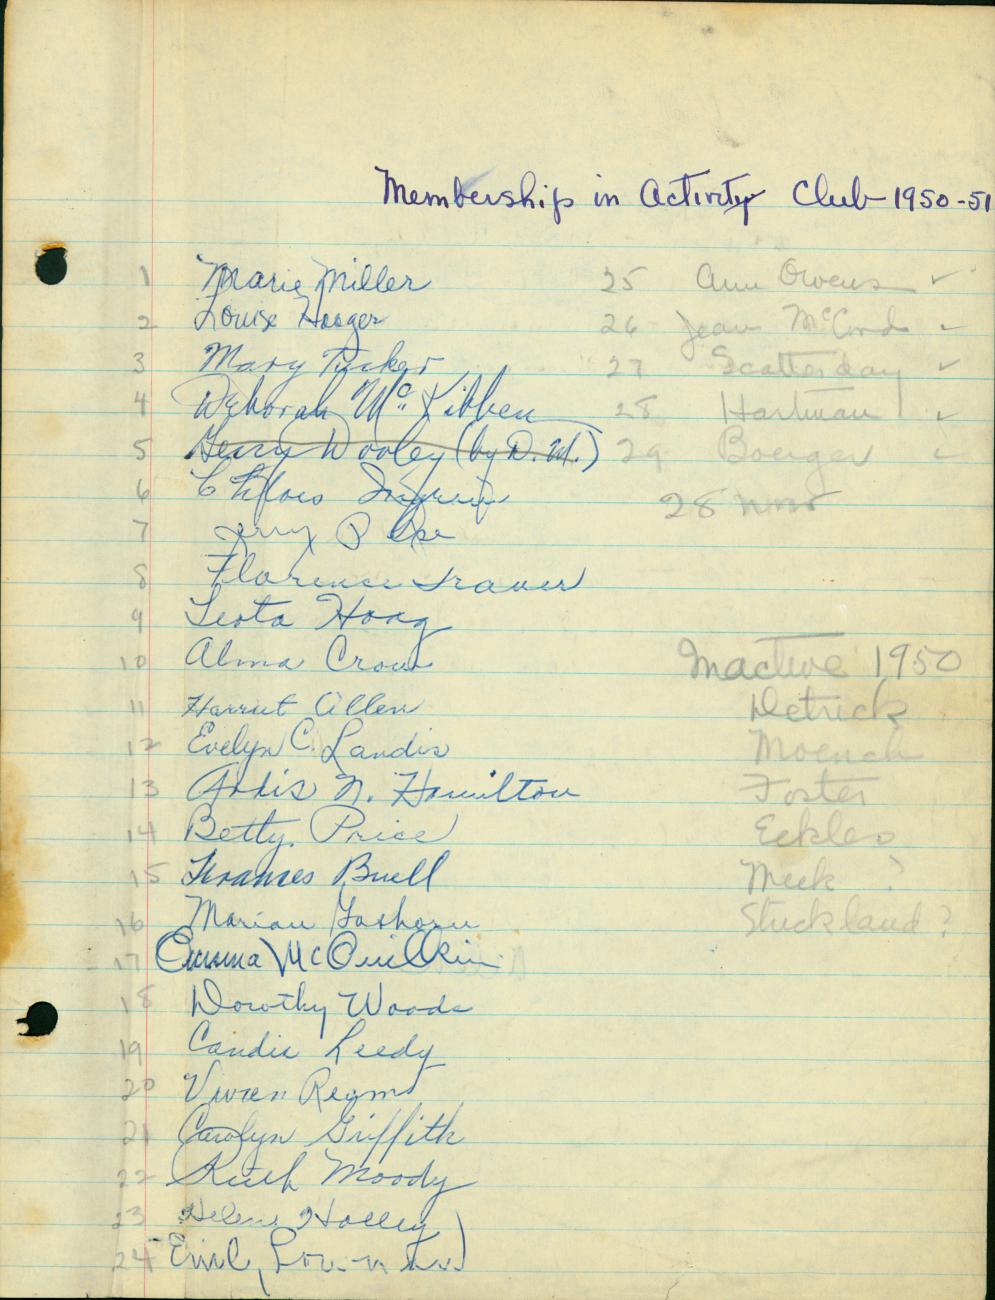 Membership in Activity Club-1950-51
1 Marie Miller
2 Louise Hoager
3 Mary Tucker
4 Deborah McKibben
5 Gerry Wooley (by D.M.)
6
7 Jerry
8 Florence Traver
9 Leota Hoag
10 Alma Crow
11 Harriet Allen
12 Evelyn C. Landis
13 Ardis N. Hamilton
14 Betty Price
15 Frances Buell
16 Marian Goshorn
17 Emma McQuilkin
18 Dorothy Woods
19 Candis Leedy
20 Vivien
21 Carolyn Griffith
22 Ruth Moody
23 Helene Holley
24 Emily
25 Ann Owens ✓
26 Jean McCord ✓
27 Scatterday ✓
28 Hartman ✓
29 Boerger ✓
28 now
Inactive 1950
Detrick
Moench
Foster
Eckles
Meek ?
Stuckland ?